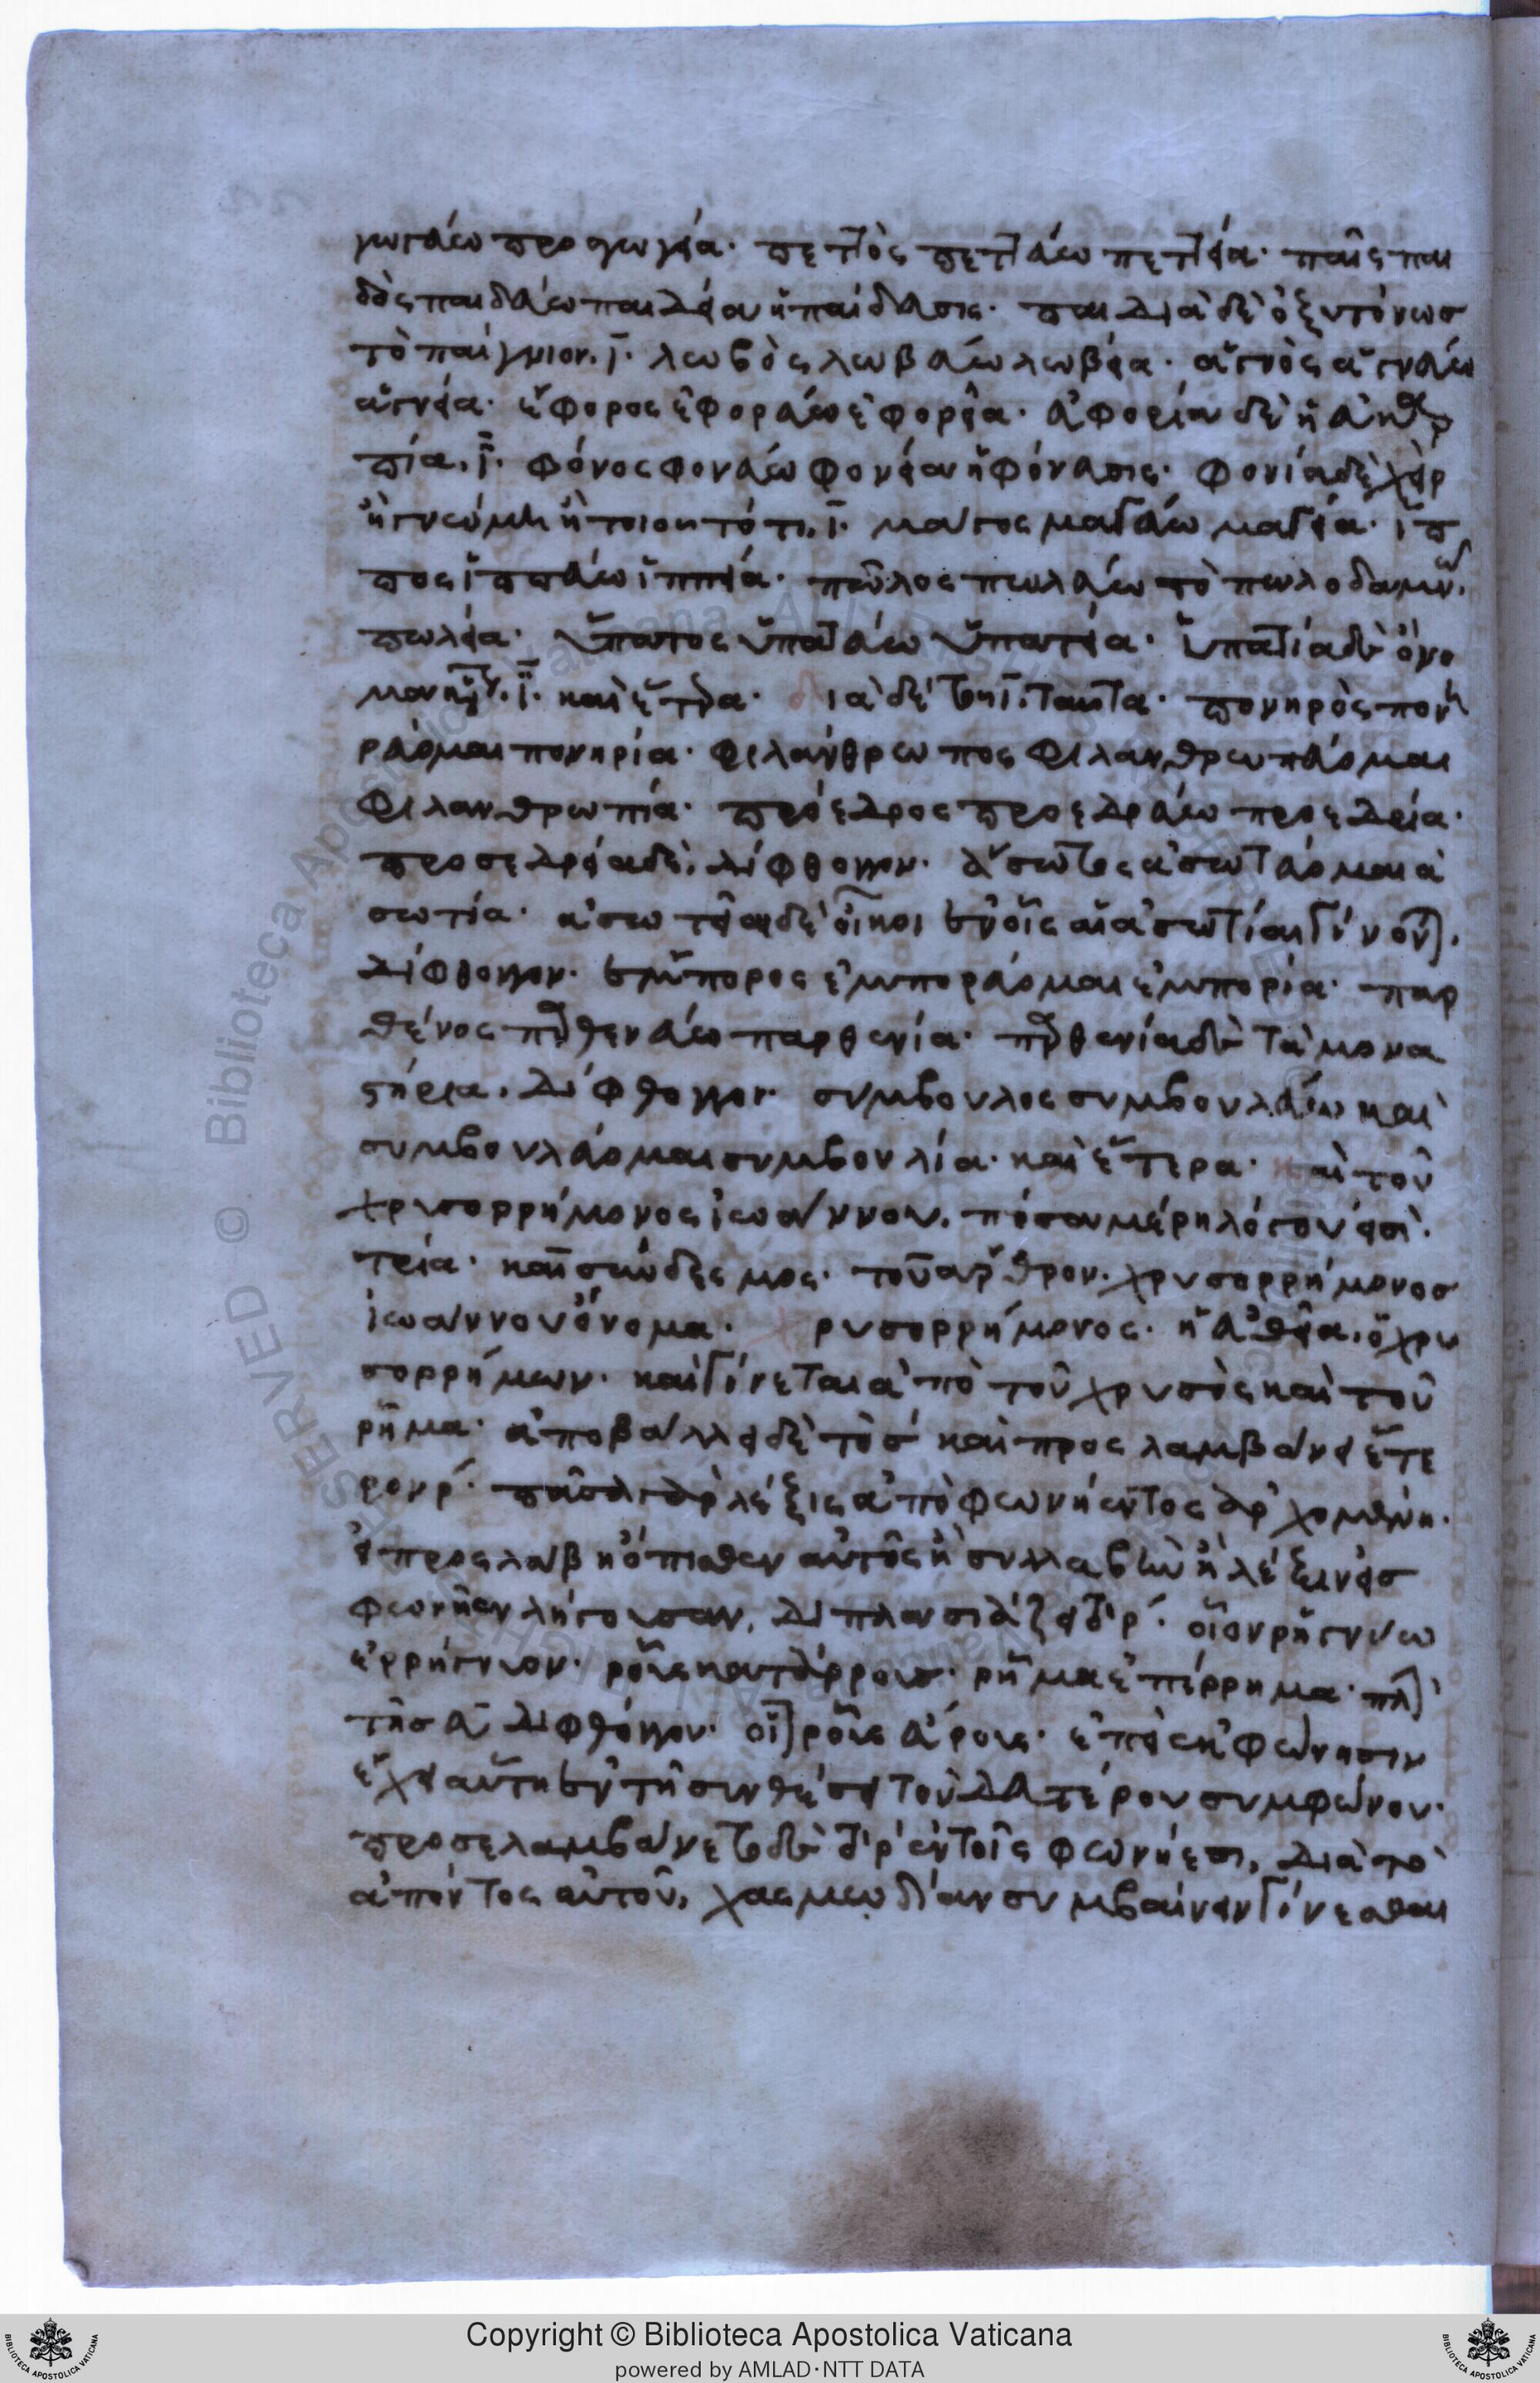 γωγεύω προγωγεία· πετ̅ὸς πετ̅εύω πετ̅εία· παῖς παι
δὸς παιδεύω παιδεία ἡ παίδευσις· παιδιὰ δὲ ὀξυτόνως
τὸ παίγνιον, ϊ· λωβὸς λωβεύω λωβεία· ἁγνὸς ἁγνεύω
ἁγνεία· ἔφορος ἐφορεύω ἐφορεία· ἀφορία δὲ ἡ
πία, ϊ· φόνος φονεύω φονεία ἡ φόνευσις· φονία δὲ χεὶρ
ἢ γνώμη ἢ τοιοῦτό τι, ϊ· μάγος μαγεύω μαγεία· ἵπ
πος ἱππεύω ἱππεία· πῶλος πωλεύω τὸ πωλοδαμν
πωλεία· ὕπατος ὑπατεύω ὑπατεία· ὑπατία δὲ ὄνο
μα κύρ. ϊ· καὶ ἕτερα· διὰ δὲ τοῦ ϊ, ταῦτα· πονηρὸς πονη
ρεύομαι πονηρία· φιλάνθρωπος φιλανθρωπεύομαι
φιλανθρωπία· πρόεδρος προεδρεύω προεδρία·
προσεδρεία δὲ, δίφθογγον· ἄσωτος ἀσωτεύομαι ἀ
σωτία· ἀσωτεῖα δὲ οἶκοι ἐν οἷς αἱ ἀσωτίαι γίνον),
δίφθογγον· ἔμπορος ἐμπορεύομαι ἐμπορία· παρ
θένος παρθενεύω παρθενία· παρθενεία δὲ τὰ μονα
στήρια, δίφθογγον· σύμβουλος συμβουλεύω καὶ
συμβουλεύομαι συμβουλία· καὶ ἕτερα· καὶ τοῦ
χρυσορρήμονος ἰωάννου, πόσα μέρη λόγου εἰσί·
τρία· καὶ σύνδεσμος· τοῦ ἄρθρον· χρυσορρήμονος
ἰωάννου ὄνομα· χρυσορρήμονος· ἡ εὐθεῖα, ὁ χρυ
σορρήμων· καὶ γίνεται ἀπὸ τοῦ χρυσὸς καὶ τοῦ
ῥῆμα· ἀποβάλλει δὲ τὸ σ καὶ προσλαμβάνει ἕτε
ρον ρ· πᾶσα γὰρ λέξις ἀπὸ φωνήεντος ἀρχομένη·
εἰ προσλάβη ὄπισθεν αὐτῆς ἢ συλλαβὴν ἢ λέξιν εἰς
φωνῆεν λήγουσαν, διπλασιάζει τὸ ρ· οἷον ῥηγνύω
ἐρρήγνυον· ῥοῦς κατάρρους· ῥῆμα ἐπίρρημα· πλ)
τῆς ευ διφθόγγου· οἷ) ῥοῦς εὔρους· ἐπεὶ ἐκφώνησιν
ἔχει αὕτη ἐν τῇ συνθέσει τοῦ δευτέρου συμφώνου·
προσελαμβάνετο δὲ τὸ ρ ἐν τοῖς φωνήεσι, διὰ τὸ
ἀπόντος αὐτοῦ, χασμωδίαν συμβαίνειν γίνεσθαι
Copyright © Biblioteca Apostolica Vaticana
powered by AMLAD·NTT DATA